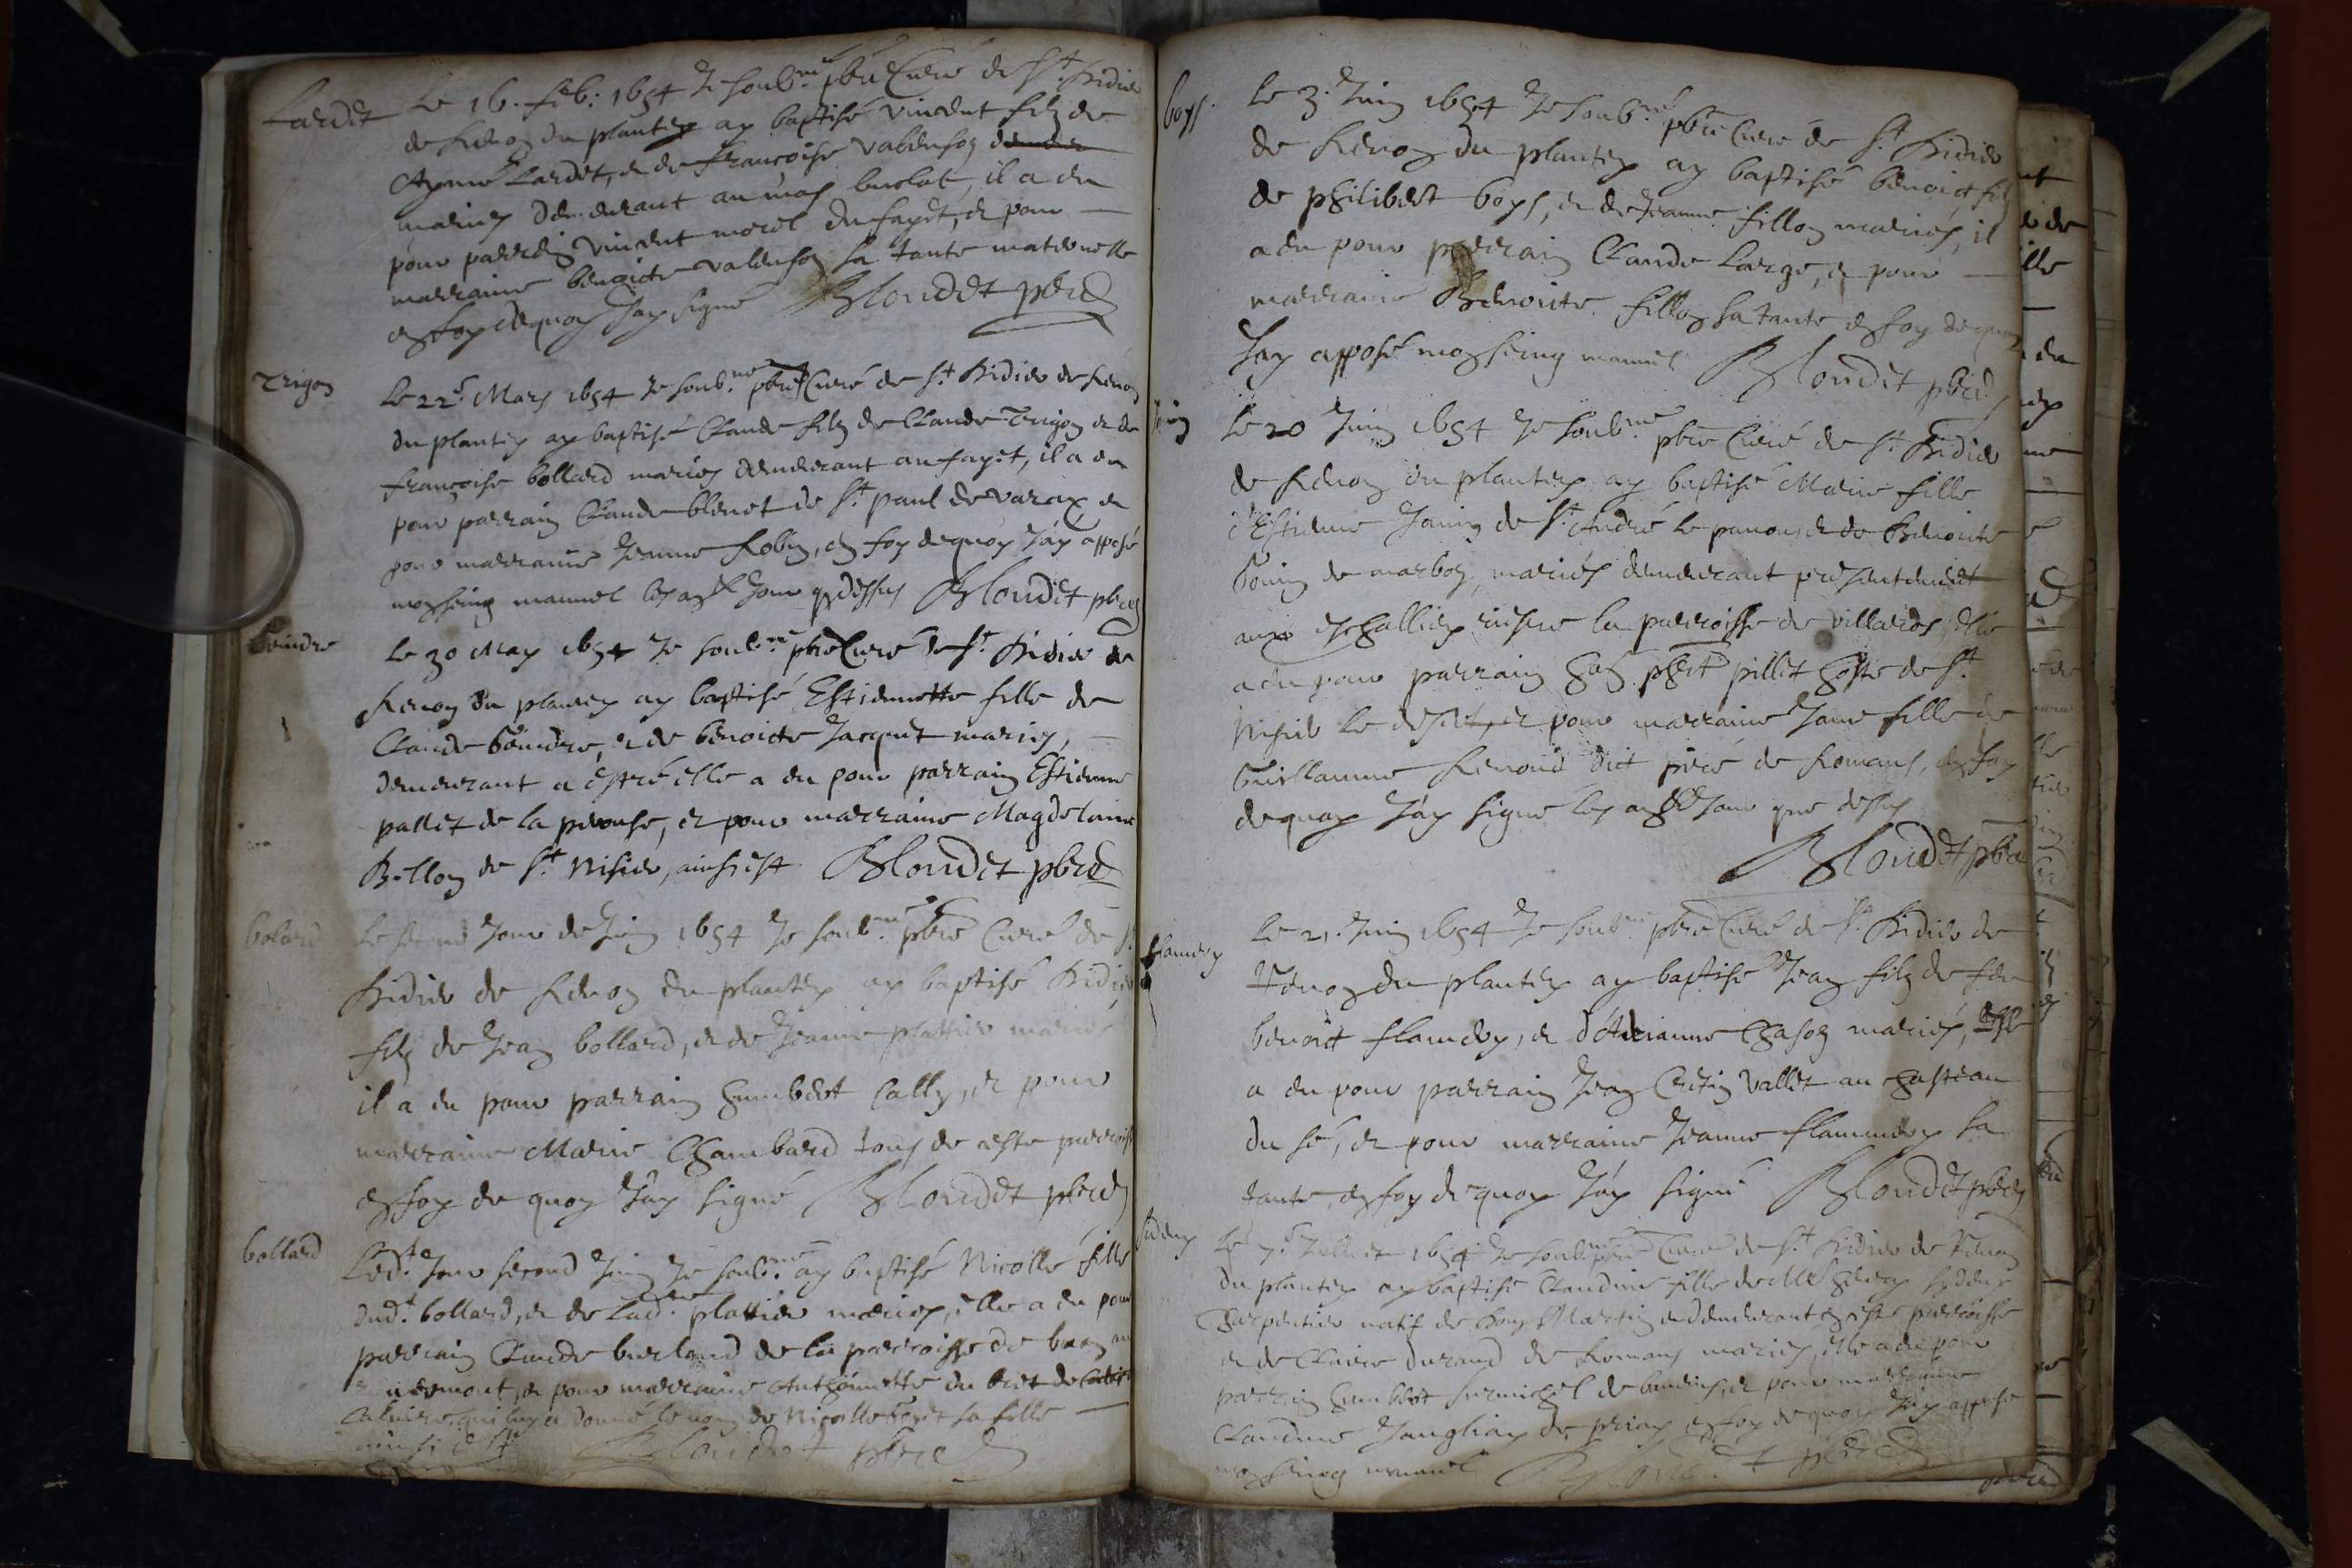 Lardet
Le 16. feb. 1654 Je soub.né pbre Curé de St. Didier
de Renon du plantey ay baptisé Vincent filz de
Aymé Lardet, et de françoise Valenson
mariés demeurant au mas burlat, il a eu
pour parrein Vincent morel du fayet, et pour
marraine benoicte Valenson sa tante maternelle
en foy dequoy Jay signé Blondet pbre
Trigon
Le 22e Mars 1654 Je soub.né pbre Curé de St. Didier de Renon
du plantey ay baptisé Claude filz de Claude Trigon et de
françoise bollard mariés demeurant au fayet, il a eu
pour parrain Claude blenet de St. paul de varax et
pour marraine Jeanne Robin, en foy dequoy Jay apposé
mon seing manuel les an et Jour q dessus Blondet pbre
Le 30 May 1654 Je soub.né pbre Curé de St. Didier de
Renon du plantey ay baptisé Estiennette fille de
Claude Goindre, et de benoicte Jacquet mariés,
demeurant a estre elle a eu pour parrain Estienne
pallet de la perouse, et pour marraine Magdelaine
Bollon de St. Nisier, ainsi est Blondet pbre
bolard
Le second Jour de Juin 1654 Je soub.né pbre Curé de St
Didier de Renon du plantey ay baptisé Didier
filz de Jean bollard, et de Jeanne plattier mariés
il a eu pour parrain humbert Cally, et pour
marraine Marie Chambard tous de ceste parroisse
en foy de quoy Jay signé Blondet pbre
bollard
Led. Jour second Juin Je soub.né ay baptisé Nicolle fille
dud. bollard, et de lad. plattier mariés, elle a eu pour
parrain Claude burland de la parroisse de
et pour marraine Anthoinette du
qui luy a donné le nom de Nicolle sa fille
ainsi est Blondet pbre
boys
Le 3. Juin 1654 Je soub.né pbre Curé de St. Didier
de Renon du plantey ay baptisé benoict filz
de philibert boys, et de Jeanne fillon mariés, il
a eu pour parrain Claude Large, et pour
marraine Benoite fillon sa tante en foy de quoy
Jay apposé mon seing manuel Blondet pbre
Le 20 Juin 1654 Je soub.né pbre Curé de St. Didier
de Renon du plantey ay baptisé Marie fille
d'Estienne Janin de St. André le panoux et de Benoite
Gonin de marboz, mariés demeurant presentement
aux riere la parroisse de villards, elle
a eu pour parrain pillet hoste de St.
Nisier le desert, et pour marraine Jane fille de
Guillaume Renoud dit de Romans, en foy
dequoy Jay signé les an et Jour que dessus
Blondet pbre
flamery
Le 21. Juin 1654 Je soub.né pbre Curé de St. Didier de
Renon du plantey ay baptisé Jean filz de feu
benoit flamery, et d'Arianne Chason mariés,
a eu pour parrain Jean Cretin vallet au chasteau
du sé, et pour marraine Jeanne flamery sa
tante, en foy dequoy Jay signé Blondet pbre
Le 7e Juillet 1654 Je soub.né pbre Curé de St. Didier de Renon
du plantey ay baptisé Claudine fille de
Charpentier natif de Martin et demeurant en ceste parroisse
et de Claire durand de Romans mariés, elle a eu pour
parrain humbert de baneins, et pour marraine
Claudine de en foy dequoy Jay apposé
mon seing manuel Blondet pbre